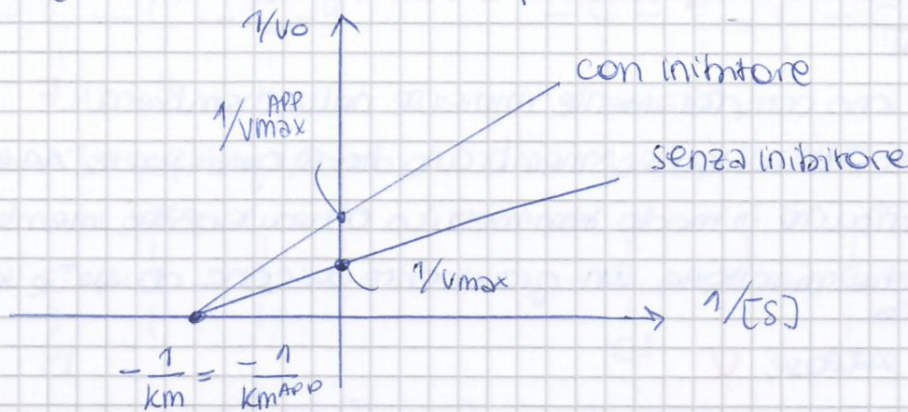 1/vo
con inibitore
1/vmax^APP
senza inibitore
1/vmax
1/[S]
-1/km = -1/km^APP